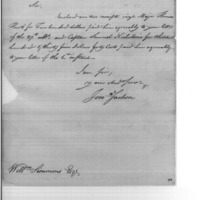 Sir
Inclosed are two receipts, viz. Major Thomas
Hunt for Two hundred dollars paid him agreeably to your letter
of the 27th ulto. and Captain Samuel Nicholson for
hundred and forty four dollars forty Cents paid him agreeably
to your letter of the 6th instant.
I am Sir,
your obed. Serv.
Jon. Jackson
Willm Simmons Esqr.